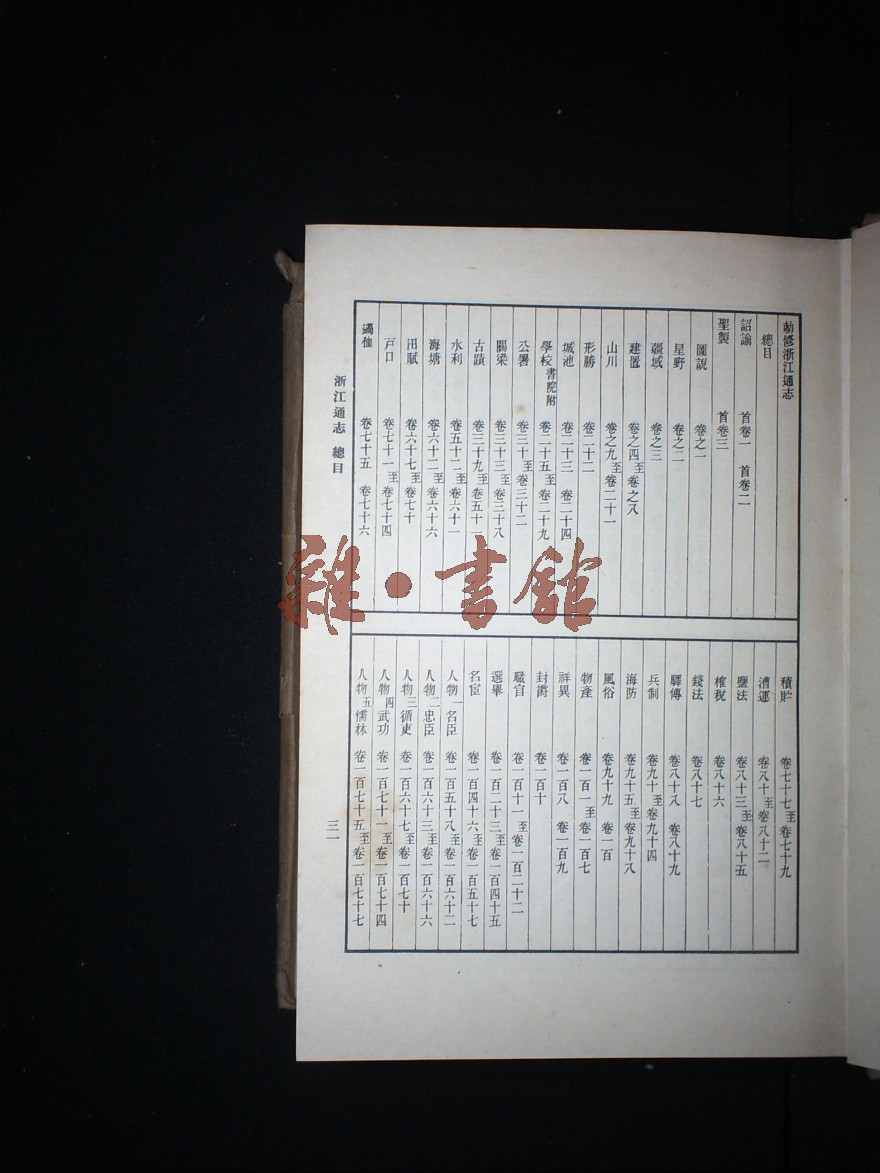 勅修浙江通志
總目
詔諭 首卷一 首卷二
聖製 首卷三
圖說 卷之一
星野 卷之二
疆域 卷之三
建置 卷之四至卷之八
山川 卷之九至卷二十一
形勝 卷二十二
城池 卷二十三 卷二十四
學校書院附 卷二十五至卷二十九
公署 卷三十至卷三十二
關梁 卷三十三至卷三十八
古蹟 卷三十九至卷五十一
水利 卷五十二至卷六十一
海塘 卷六十二至卷六十六
田賦 卷六十七至卷七十
戶口 卷七十一至卷七十四
蠲恤 卷七十五 卷七十六
積貯 卷七十七至卷七十九
漕運 卷八十至卷八十二
鹽法 卷八十三至卷八十五
榷稅 卷八十六
錢法 卷八十七
驛傳 卷八十八 卷八十九
兵制 卷九十至卷九十四
海防 卷九十五至卷九十八
風俗 卷九十九 卷一百
物產 卷一百一至卷一百七
祥異 卷一百八 卷一百九
封爵 卷一百十
職官 卷一百十一至卷一百二十二
選舉 卷一百二十三至卷一百四十五
名宦 卷一百四十六至卷一百五十七
人物一名臣 卷一百五十八至卷一百六十二
人物二忠臣 卷一百六十三至卷一百六十六
人物三循吏 卷一百六十七至卷一百七十
人物四武功 卷一百七十一至卷一百七十四
人物五儒林 卷一百七十五至卷一百七十七
浙江通志 總目
三一
雜·書館